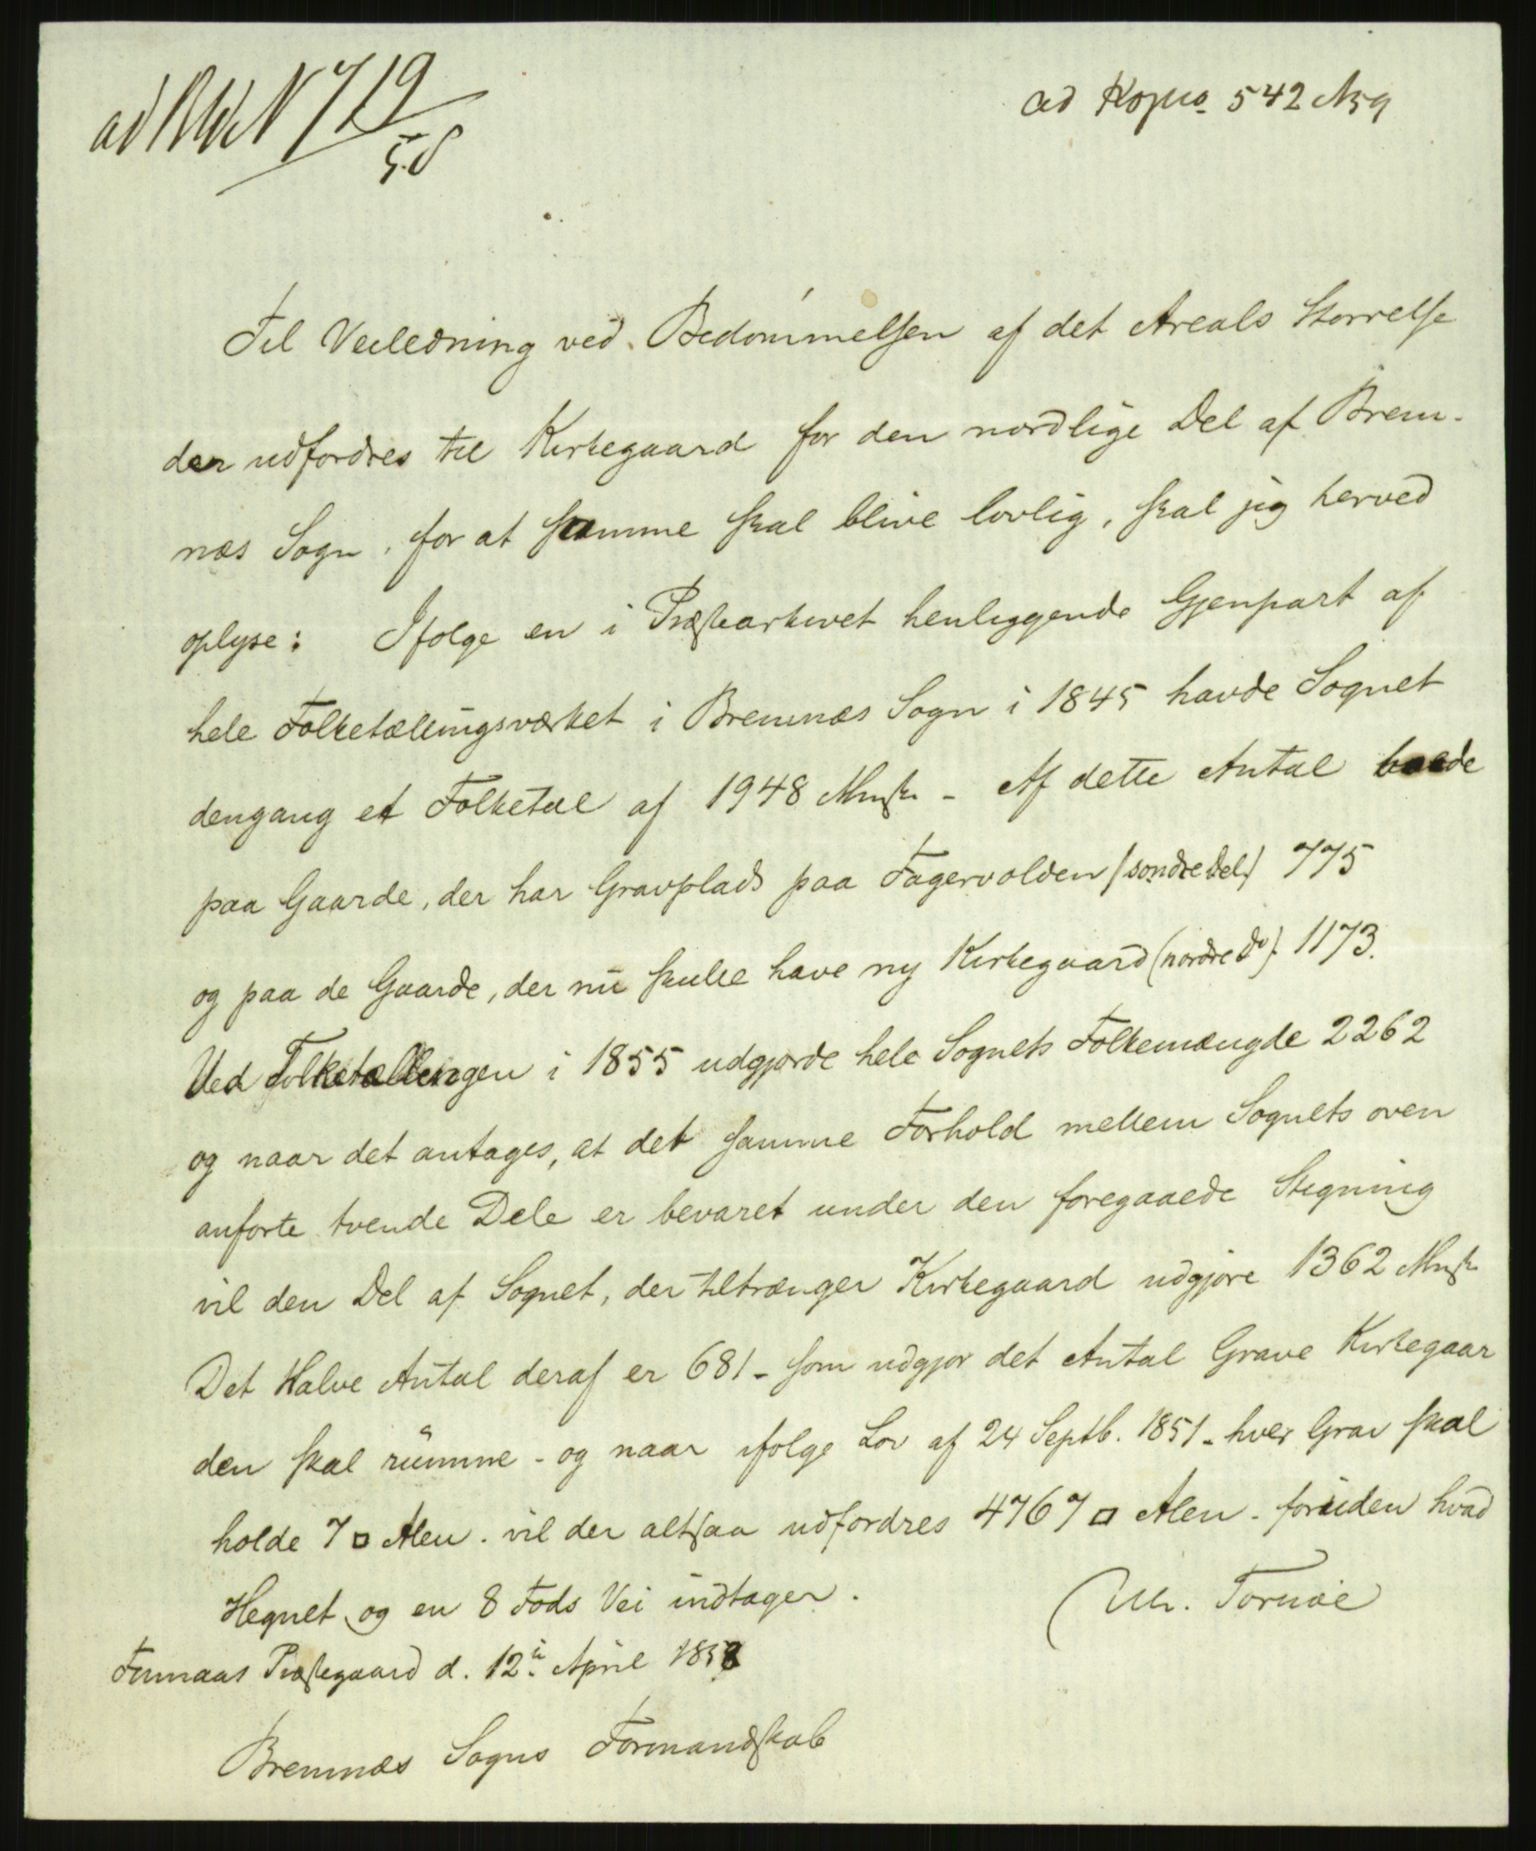 ad N 719
58
ad Kopie 542 N59
Til Veiledning ved Bedømmelsen af det Areals Størrelse
der udfordres til Kirkegaard for den nordlige Del af Brem-
næs Sogn, for at samme skal blive lovlig, skal jeg herved
oplyse: Ifølge en i Præstearkivet henliggende Gjenpart af
hele Folketællingsværket i Bremnæs Sogn i 1845 havde Sognet
dengang et Folketal af 1948 Mnsk - Af dette Antal boede
paa Gaarde, der har Gravplads paa Fagervolden /søndre Del/ 775
og paa de Gaarde, der nu skulle have ny Kirkegaard (nordre do) 1173.
Ved Folketællingen i 1855 udgjorde hele Sognets Folkemængde 2262
og naar det antages, at det samme Forhold mellem Sognets oven
anførte tvende Dele er bevaret under den foregaaede Stigning
vil den Del af Sognet, der tiltrænger Kirkegaard udgjøre 1362 Mnsk
Det Halve Antal deraf er 681 - som udgjør det Antal Grave Kirkegaar
den skal rumme - og naar ifølge Lov af 24 Septb. 1851 - hver Grav skal
holde 7 □ Alen. vil der altsaa udfordres 4767 □ Alen - foruden hvad
Hegnet og en 8 Fods Vei indtager.
Uh. Tornøe
Finnaas Præstegaard d. 12te April 1858
Bremnæs Sogns Formandskab